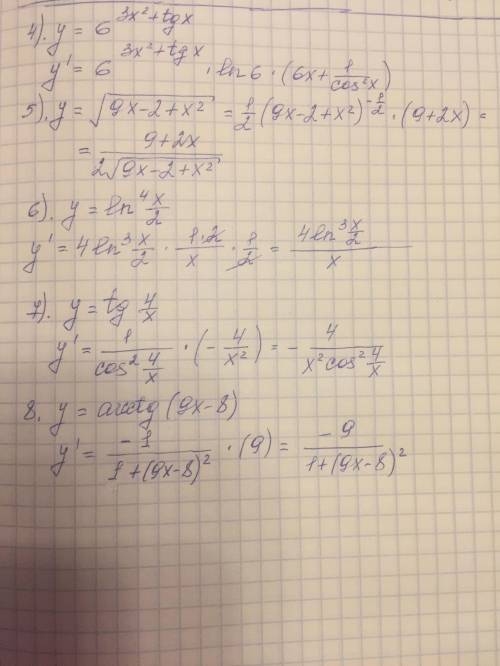 4). y = 6^(3x²+tgx)
y' = 6^(3x²+tgx) · ln6 · (6x + 1/cos²x)
5). y = √(9x-2+x²) = 1/2 (9x-2+x²)^(-1/2) · (9+2x) =
= (9+2x)/(2√(9x-2+x²))
6). y = ln⁴ x/2
y' = 4ln³ x/2 · (1·2)/x · 1/2 = (4ln³ x/2)/x
7). y = tg 4/x
y' = 1/(cos² 4/x) · (- 4/x²) = - 4/(x² cos² 4/x)
8. y = arcctg (9x-8)
y' = -1/(1+(9x-8)²) · (9) = -9/(1+(9x-8)²)